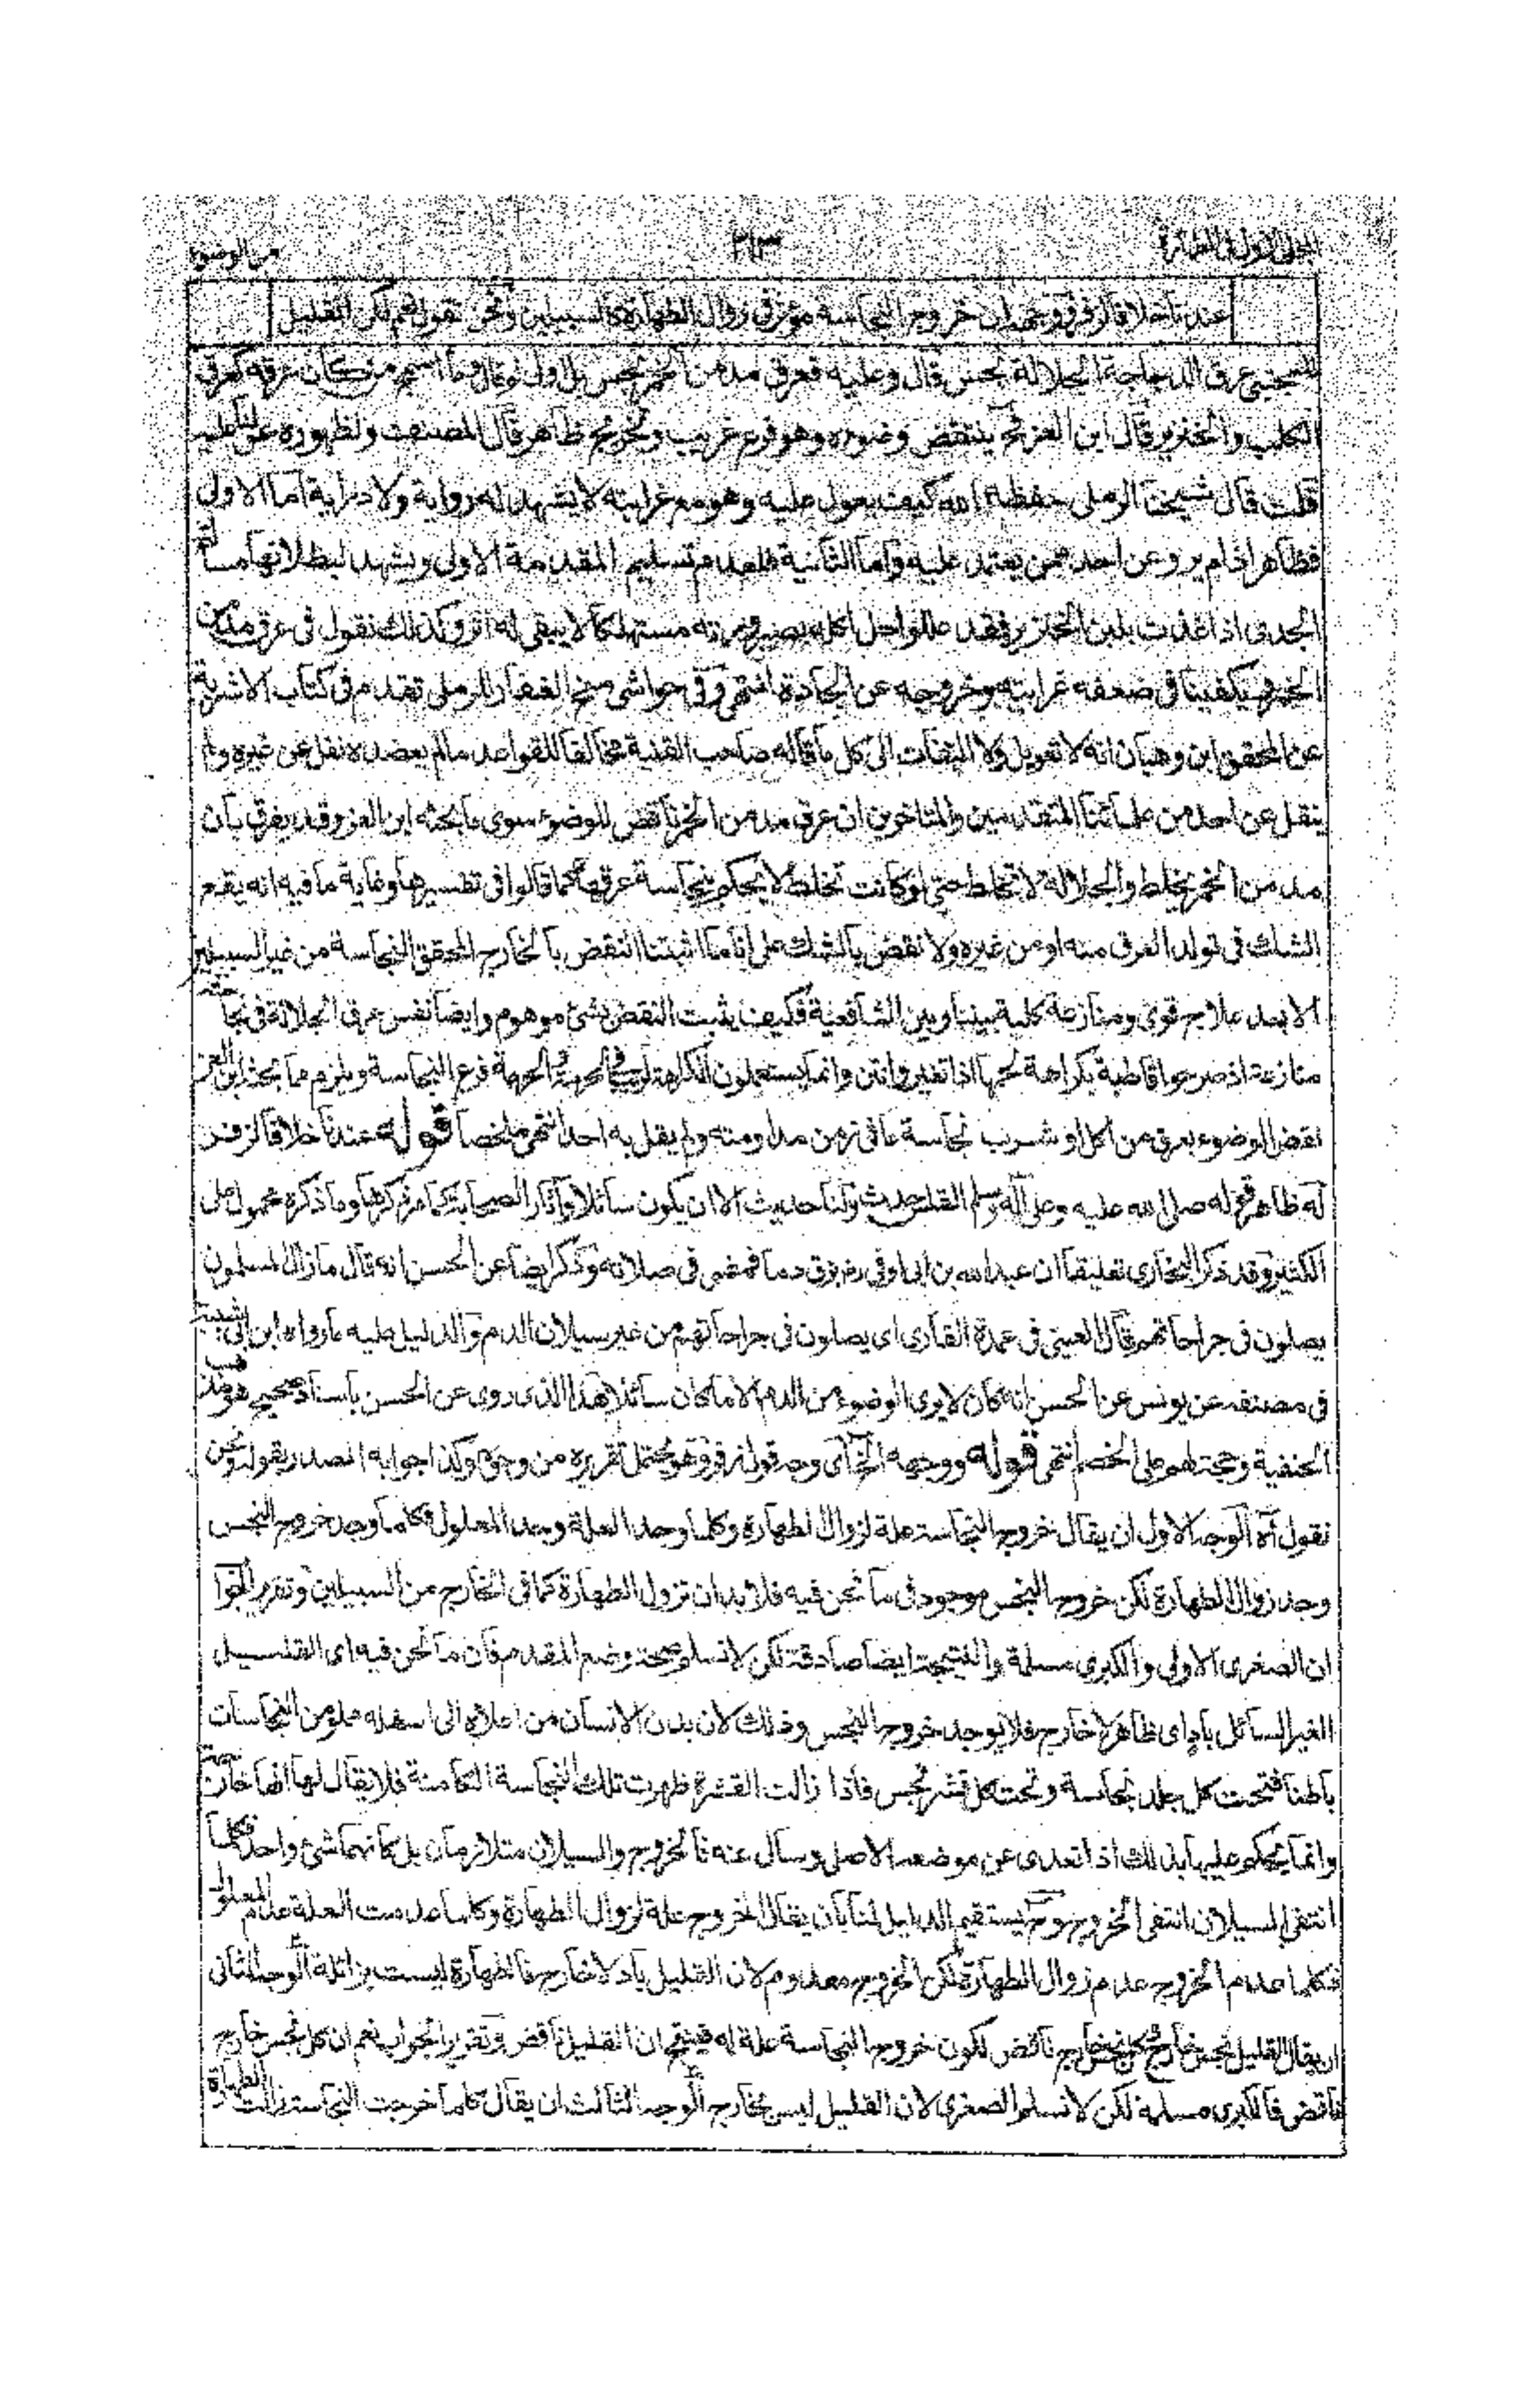 الجلد الاول في الطهارة
٢١٣
من الوضوء
عندنا خلافا لزفر ووجهه ان خروج النجاسة مؤثر في زوال الطهارة كالسبيلين ونحن نقول نعم لكن القليل
للمجتبى عرق الدجاجة الجلالة نجس قال وعليه فعرق مدمن الخمر نجس بل اولى ثم قال وما اسمج من كان عرقه كعرق
الكلب والخنزير قال ابن العز فح ينتقض وضوءه وهو فرع غريب وتخريج ظاهر قال المصنف ولظهوره عولنا عليه
قلت قال شيخنا الرملي حفظه الله كيف يعول عليه وهو مع غرابته لا يشهد له رواية ولا دراية اما الاولى
فظاهر اذ لم يرو عن احد ممن يعتمد عليه واما الثانية فلعدم تسليم المقدمة الاولى ويشهد لبطلانها مسألة
الجدي اذا غذى بلبن الخنزير فقد عللوا حل اكله بصيرورته مستهلكا لا يبقى له اثر وكذلك نقول في عرق مدمن
الخمر ويكفينا في ضعفه غرابته وخروجه عن الجادة انتهى وفي حواشي منح الغفار للرملي تقدم في كتاب الاشربة
عن المحقق ابن وهبان انه لا تعويل ولا التفات الى كل ما قاله صاحب القنية مخالفا للقواعد مالم يعضده نقل عن غيره ولم
ينقل عن احد من علمائنا المتقدمين والمتاخرين ان عرق مدمن الخمر ناقض للوضوء سوى ما بحثه ابن العز وقد يفرق بأن
مدمن الخمر يخلط والجلالة لا تخلط حتى لو كانت تخلط لا يحكم بنجاسة عرقها كما قالوا في تفسيرها وغاية ما فيه انه يقع
الشك في تولد العرق منه او من غيره ولا نقض بالشك على انا ما اثبتنا النقض بالخارج المحقق النجاسة من غير السبيلين
الا بعد علاج قوى ومنازعة كلية بيننا وبين الشافعية فكيف يثبت النقض بشئ موهوم وايضا نفس عرق الجلالة في نجاسته
منازعة اذ صرحوا قاطبة بكراهة لحمها اذا تغير وانتن وانما يستعملون الكراهة فرع النجاسة ويلزم مما بحثه ابن العز
نقض الوضوء بعرق من اكل او شرب نجاسة ما في زمن مداومته ولم يقل به احد انتهى ملخصا قوله عندنا خلافا لزفر
له ظاهر قوله صلى الله عليه وعلى آله وسلم القلس حدث ولنا حديث الا ان يكون سائلا وآثار الصحابة كما مر ذكرها وما ذكره محمول على
الكثير وقد ذكر البخاري تعليقا ان عبد الله بن ابي اوفى رض بزق دما فمضى في صلاته وذكر ايضا عن الحسن انه قال ما زال المسلمون
يصلون في جراحاتهم قال العيني في عمدة القاري اى يصلون في جراحاتهم من غير سيلان الدم والدليل عليه ما رواه ابن ابي شيبة
في مصنفه عن يونس عن الحسن انه كان لا يرى الوضوء من الدم الا ما كان سائلا هذا الذي روى عن الحسن باسناد صحيح هو مذهب
الحنفية وحجة لهم على الخصم انتهى قوله ووجهه الخ اى وجه قول زفر وهو يحتمل تقريره من وجوه وكذا جوابه المصدر بقوله ونحن
نقول آه الوجه الاول ان يقال خروج النجاسة علة لزوال الطهارة وكلما وجد العلة وجد المعلول فكلما وجد خروج النجس
وجد زوال الطهارة لكن خروج النجس موجود في ما نحن فيه فلا بد ان تزول الطهارة كما في الخارج من السبيلين وتقرير الجواب
ان الصغرى الاولى والكبرى مسلمة والنتيجة ايضا صادقة لكن لا نسلم صحة وضع المقدم فان ما نحن فيه اى القليل
الغير السائل باد اى ظاهر لا خارج فلا يوجد خروج النجس وذلك لان بدن الانسان من اعلاه الى اسفله مملو من النجاسات
باطنا فتحت كل جلد نجاسة وتحت كل قشر نجس فاذا زالت القشرة ظهرت تلك النجاسة الكامنة فلا يقال لها انها خارجة
وانما يحكم عليها بذلك اذا تعدى عن موضعه الاصل وسال عنه فالخروج والسيلان متلازمان بل كانهما شئ واحد فكلما
انتفى السيلان انتفى الخروج وح يستقيم الدليل لنا بان يقال الخروج علة لزوال الطهارة وكلما عدمت العلة عدم المعلول
فكلما عدم الخروج عدم زوال الطهارة لكن الخروج معدوم لان القليل باد لا خارج فالطهارة ليست بزائلة الوجه الثاني
ان يقال القليل نجس خارج وكل نجس خارج ناقض لكون خروج النجاسة علة له فينتج ان القليل ناقض وتقرير الجواب نعم ان كل نجس خارج
ناقض فالكبرى مسلمة لكن لا نسلم الصغرى لان القليل ليس بخارج الوجه الثالث ان يقال كلما خرجت النجاسة زالت الطهارة